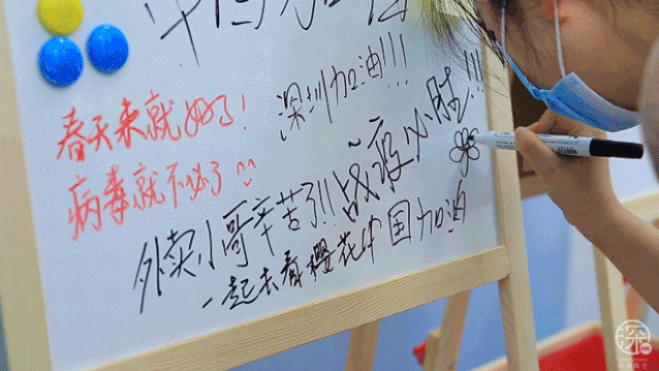 中国加油
深圳加油!!!
春天来就好了!
病毒就不必了
战疫必胜!!!
外卖小哥辛苦了!!
一起去看樱花中国加油
深